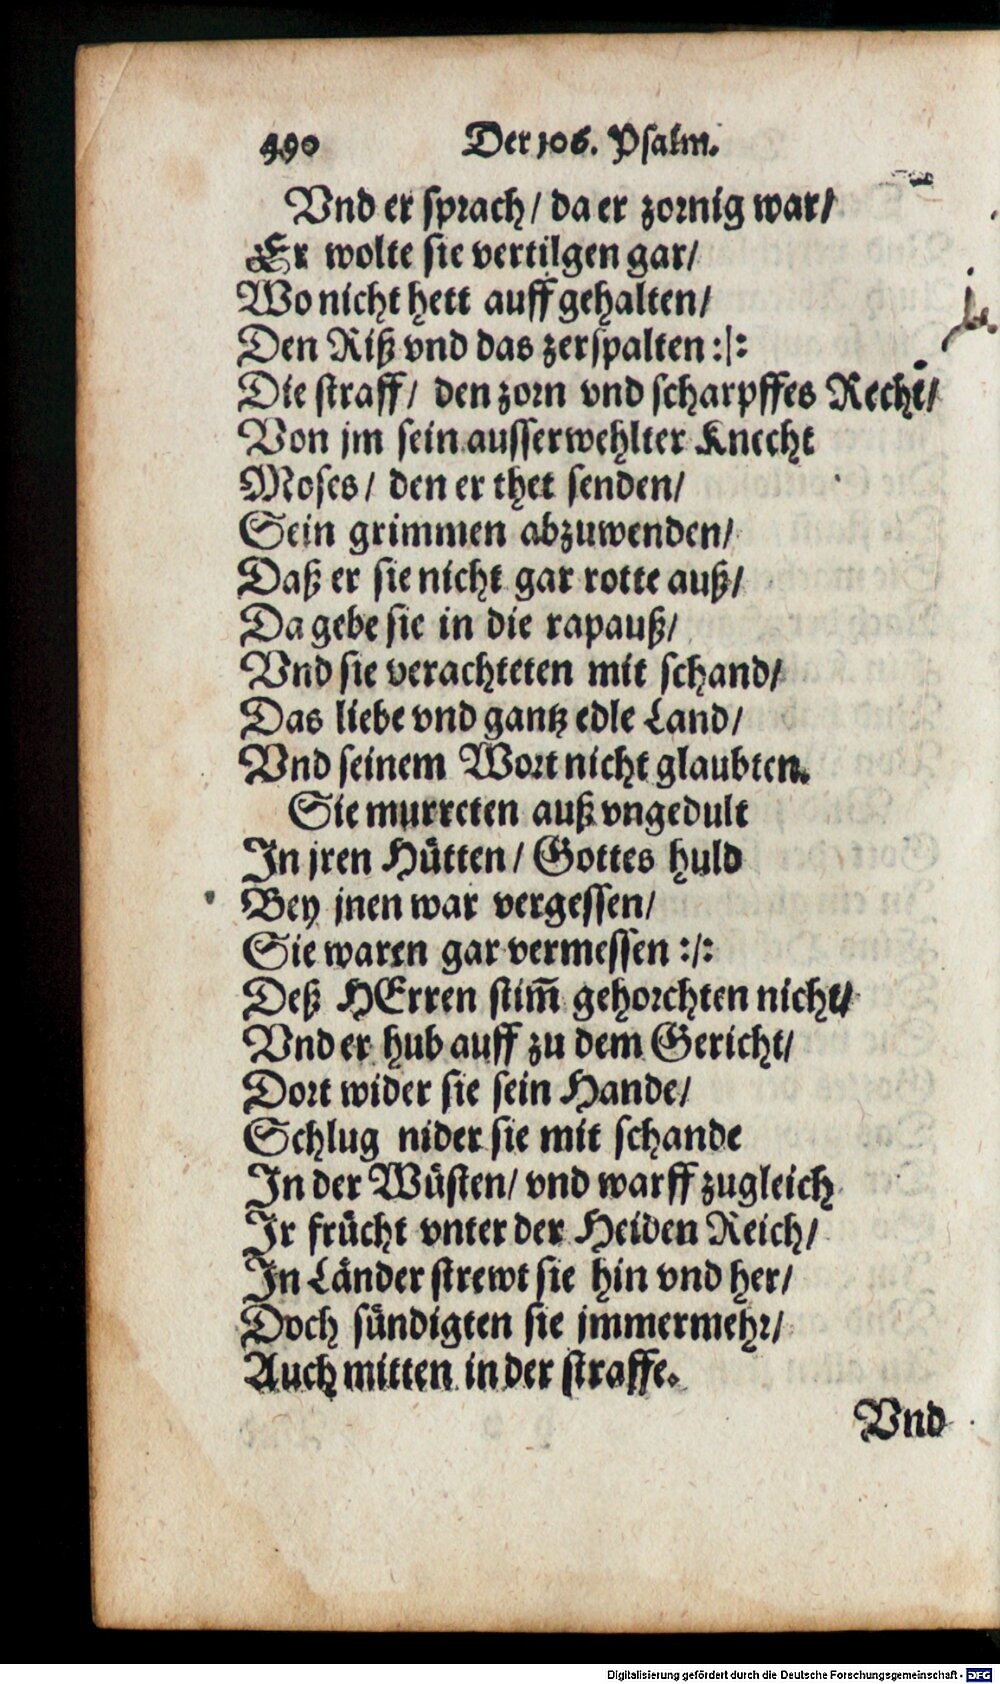 490 Der 106. Psalm.
Vnd er sprach/ da er zornig war/
Er wolte sie vertilgen gar/
Wo nicht hett auffgehalten/
Den Riß vnd das zerspalten :/:
Die straff/ den zorn vnd scharpffes Recht/
Von jm sein ausserwehlter Knecht
Moses/ den er thet senden/
Sein grimmen abzuwenden/
Daß er sie nicht gar rotte auß/
Da gebe sie in die rapauß/
Vnd sie verachteten mit schand/
Das liebe vnd gantz edle Land/
Vnd seinem Wort nicht glaubten.
Sie murreten auß vngedult
In jren Hütten/ Gottes huld
Bey jnen war vergessen/
Sie waren gar vermessen :/:
Deß HErren stim̃ gehorchten nicht/
Vnd er hub auff zu dem Gericht/
Dort wider sie sein Hande/
Schlug nider sie mit schande
In der Wüsten/ vnd warff zugleich
Jr frücht vnter der Heiden Reich/
In Länder strewt sie hin vnd her/
Doch sündigten sie jmmermehr/
Auch mitten in der straffe.
Vnd
Digitalisierung gefördert durch die Deutsche Forschungsgemeinschaft - DFG